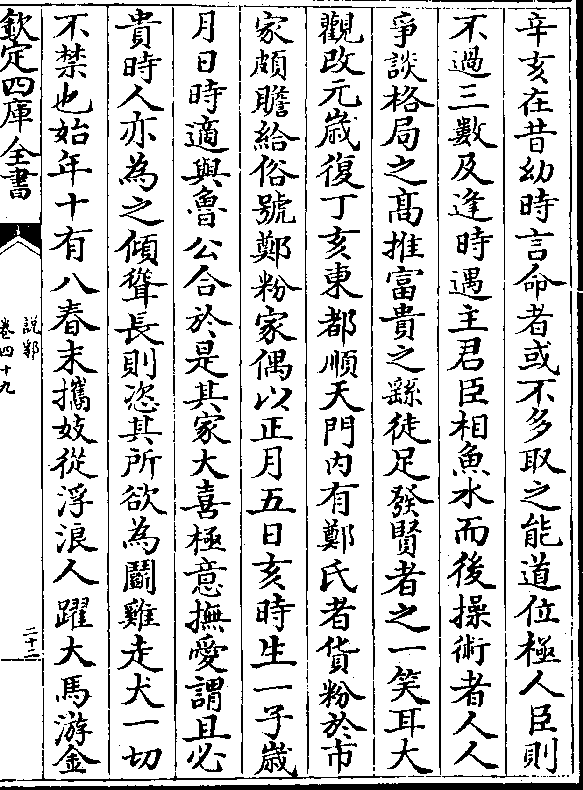 辛亥在昔幼時言命者或不多取之能道位極人臣則
不過三數及逢時遇主君臣相魚水而後操術者人人
爭談格局之髙推富貴之繇徒足發賢者之一笑耳大
觀改元嵗復丁亥東都順天門内有鄭氏者貨粉於市
家頗贍給俗號鄭粉家偶以正月五日亥時生一子嵗
月日時適與魯公合於是其家大喜極意撫愛謂且必
貴時人亦為之傾聳長則恣其所欲為鬬雞走犬一切
不禁也始年十有八春末攜妓從浮浪人躍大馬游金
欽定四庫全書
說郛
卷四十九
二十二